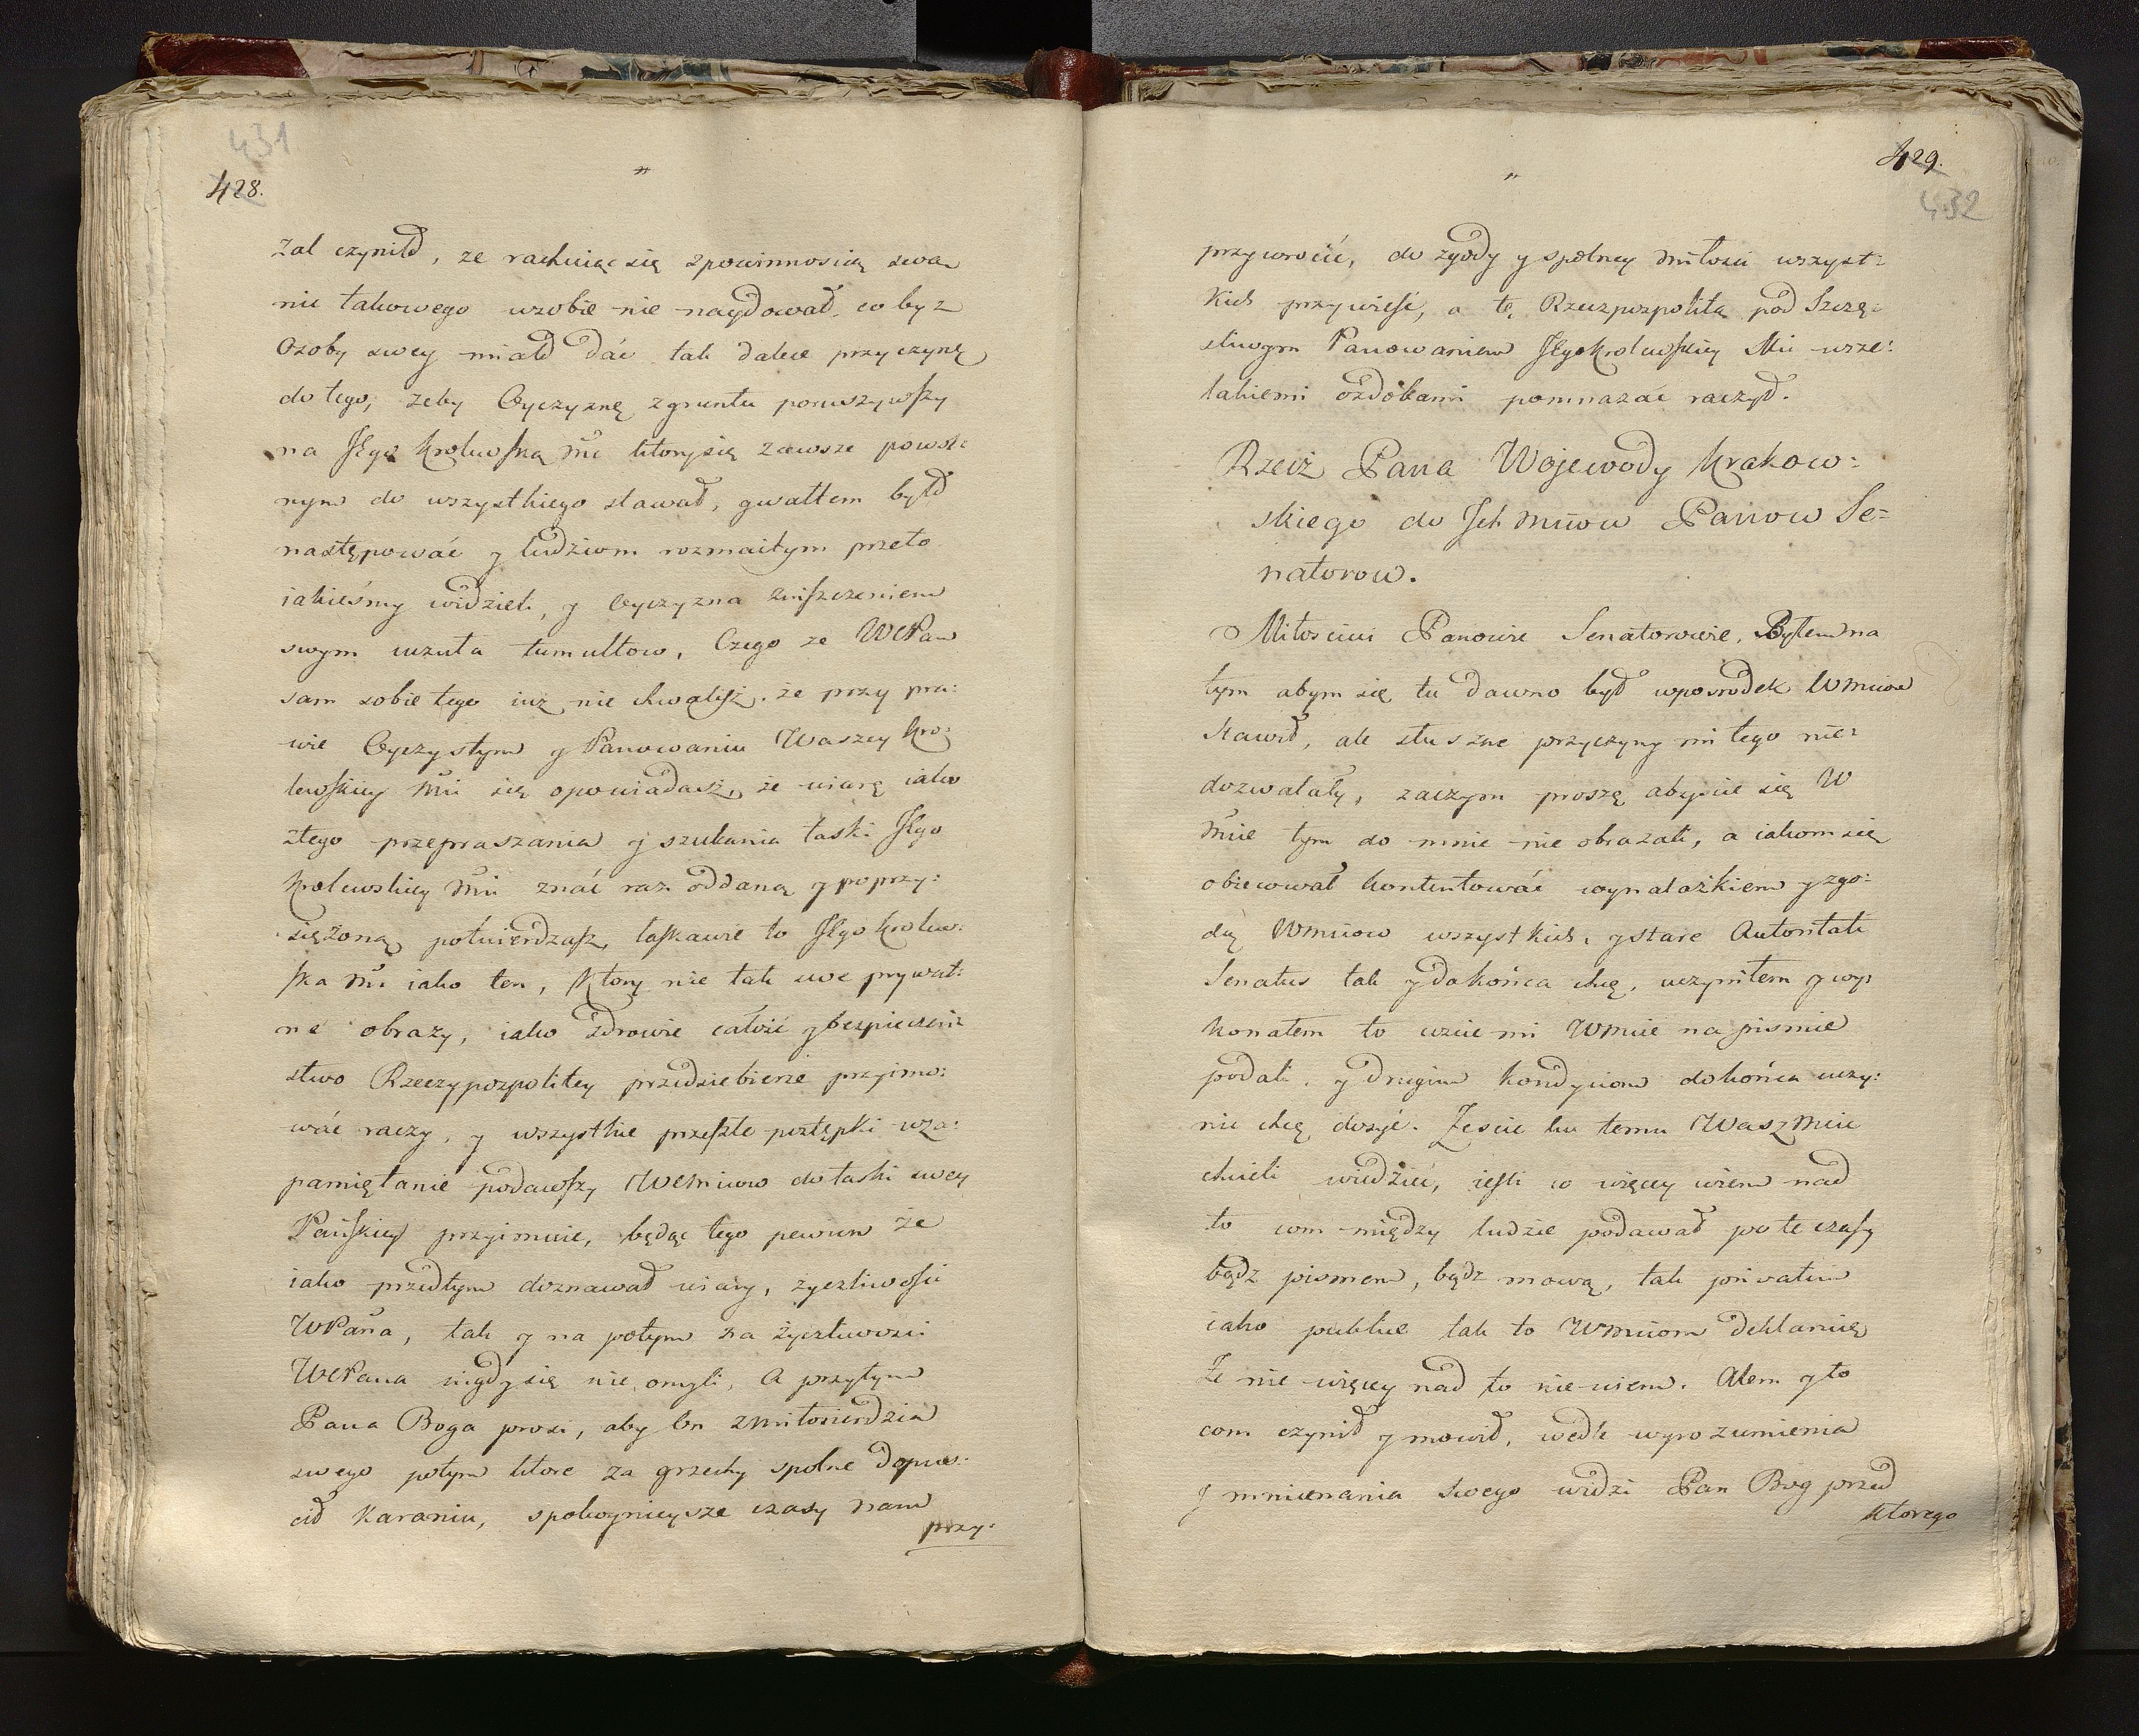 431
428.
"
zal czynił, ze rachuiąc się z powinnoscią swą
nic takowego w sobie nie naydował, co by z
Osoby swey miał dać tak dalece przyczynę
do tego, zeby Oyczyznę z gruntu poruszywszy
na Jego Krolewską Mć ktory się zawsze powol:
nym do wszystkiego stawał, gwałtem był
następować y ludziom rozmaitym przeto
iakiesmy widzieli, y Oyczyzna zniszczeniem
swym uczuła tumultow, Czego ze WMPan
sam sobie tego iuz nie chwalisz, że przy pra:
wie Oyczystym y Panowaniu Waszey Kro:
lewskiey Mci się opowiadasz, że wiarę iako
z tego przepraszania y szukania łaski Jego
Krolewskiey Mci znać raz oddaną y poprzy:
siężoną potwierdzasz, łaskawie to Jego Krolew:
ska Mć iako ten, Ktory nie tak swe prywat:
ne obrazy, iako zdrowie całość y bezpieczeń:
stwo Rzeczypospolitey przedsiebierze przyimo:
wać raczy, y wszystkie przeszłe postępki w za:
pamiętanie podawszy WMciow do łaski swey
Pańskiey przyimuie, będąc tego pewien że
iako przedtym doznawał wiary, zyczliwosci
WPana, tak y na potym na życzliwosci
WMPana nigdy się nie omyli, A przytym
Pana Boga prosi, aby On z miłosierdzia
swego potym ktore za grzechy spolne dopus:
cił Karaniu, spokoynieysze czasy nam
przy:
429.
432
"
przywrocić, do zgody y spolney miłosci wszyst:
kich przywieść, a tę Rzeczpospolitą pod Szczę:
sliwym Panowaniem Jego Krolewskiey Mci wsze:
lakiemi ozdobami pomnazać raczył.
Rzecz Pana Wojewody Krakow:
skiego do Ich Mciow Panow Se=
natorow.
Miłosciwi Panowie Senatorowie, Byłem na
tym abym się tu dawno był w posrodek Wmciow
stawił, ale słuszne przyczyny mi tego nie:
dozwalały, zaczym proszę abyscie się W
Mcie tym do mnie nie obrazali, a iakom się
obiecował kontentować wynalazkiem y zgo:
dą Wmciow wszystkich, y stare Autoritati
Senatus tak y do końca chcę, uczyniłem y wy:
konałem to coscie mi Wmcie na pismie
podali, y drugim kondyciom do końca uczy:
nic chcę dosyć. Zescie ku temu Waszmcie
chcieli wiedzieć, iesli co więcey wiem nad
to com między ludzie podawał po te czasy
bądz pismem, bądz mową, tak privatim
iako publice tak to Wmciom deklaruię
Ze nic więcey nad to nie wiem. Alem y to
com czynił y mowił, wedle wyrozumienia
y mniemania swego widzi Pan Bog przed
ktorego